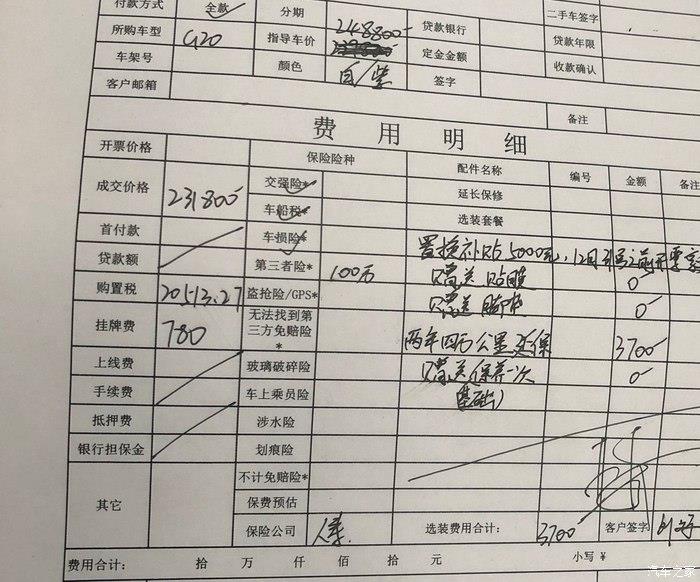 付款方式 全款 分期 贷款银行 二手车签字
所购车型 G20 指导车价 248800 定金金额 贷款年限
车架号 颜色 白/紫 签字 收款确认
客户邮箱
费用明细 备注
开票价格 保险险种 配件名称 编号 金额 备注
成交价格 231800 交强险* 延长保修
车船税* 选装套餐
首付款 车损险* 置换补贴5000元,12月31号之前开票
贷款额 第三者险* 100万 赠送贴膜 0
购置税 20513.27 盗抢险/GPS* 赠送脚垫 0
挂牌费 780 无法找到第三方免赔险* 两年四万公里延保 3700
上线费 玻璃破碎险 赠送保养一次 0
手续费 车上乘员险 基础)
抵押费 涉水险
银行担保金 划痕险
其它 不计免赔险*
保费预估
保险公司 人保 选装费用合计: 3700 客户签字
费用合计: 拾 万 仟 佰 拾 元 小写 ¥
汽车之家